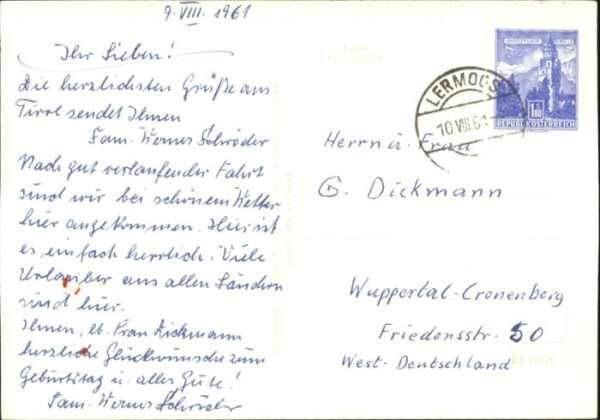 9. VIII. 1961
Ihr Lieben!
Die herzlichsten Grüße aus
Tirol sendet Ihnen
Fam. Werner Schröder
Nach gut verlaufender Fahrt
sind wir bei schönem Wetter
hier angekommen. Hier ist
es einfach herrlich. Viele
Urlauber aus allen Ländern
sind hier.
Ihnen, lb. Frau Dickmann
herzliche Glückwünsche zum
Geburtstag u. alles Gute!
Fam. Werner Schröder
LERMOOS
10.VIII.61
1.50
REPUBLIK ÖSTERREICH
Herrn u. Frau
G. Dickmann
Wuppertal-Cronenberg
Friedensstr. 50
West-Deutschland